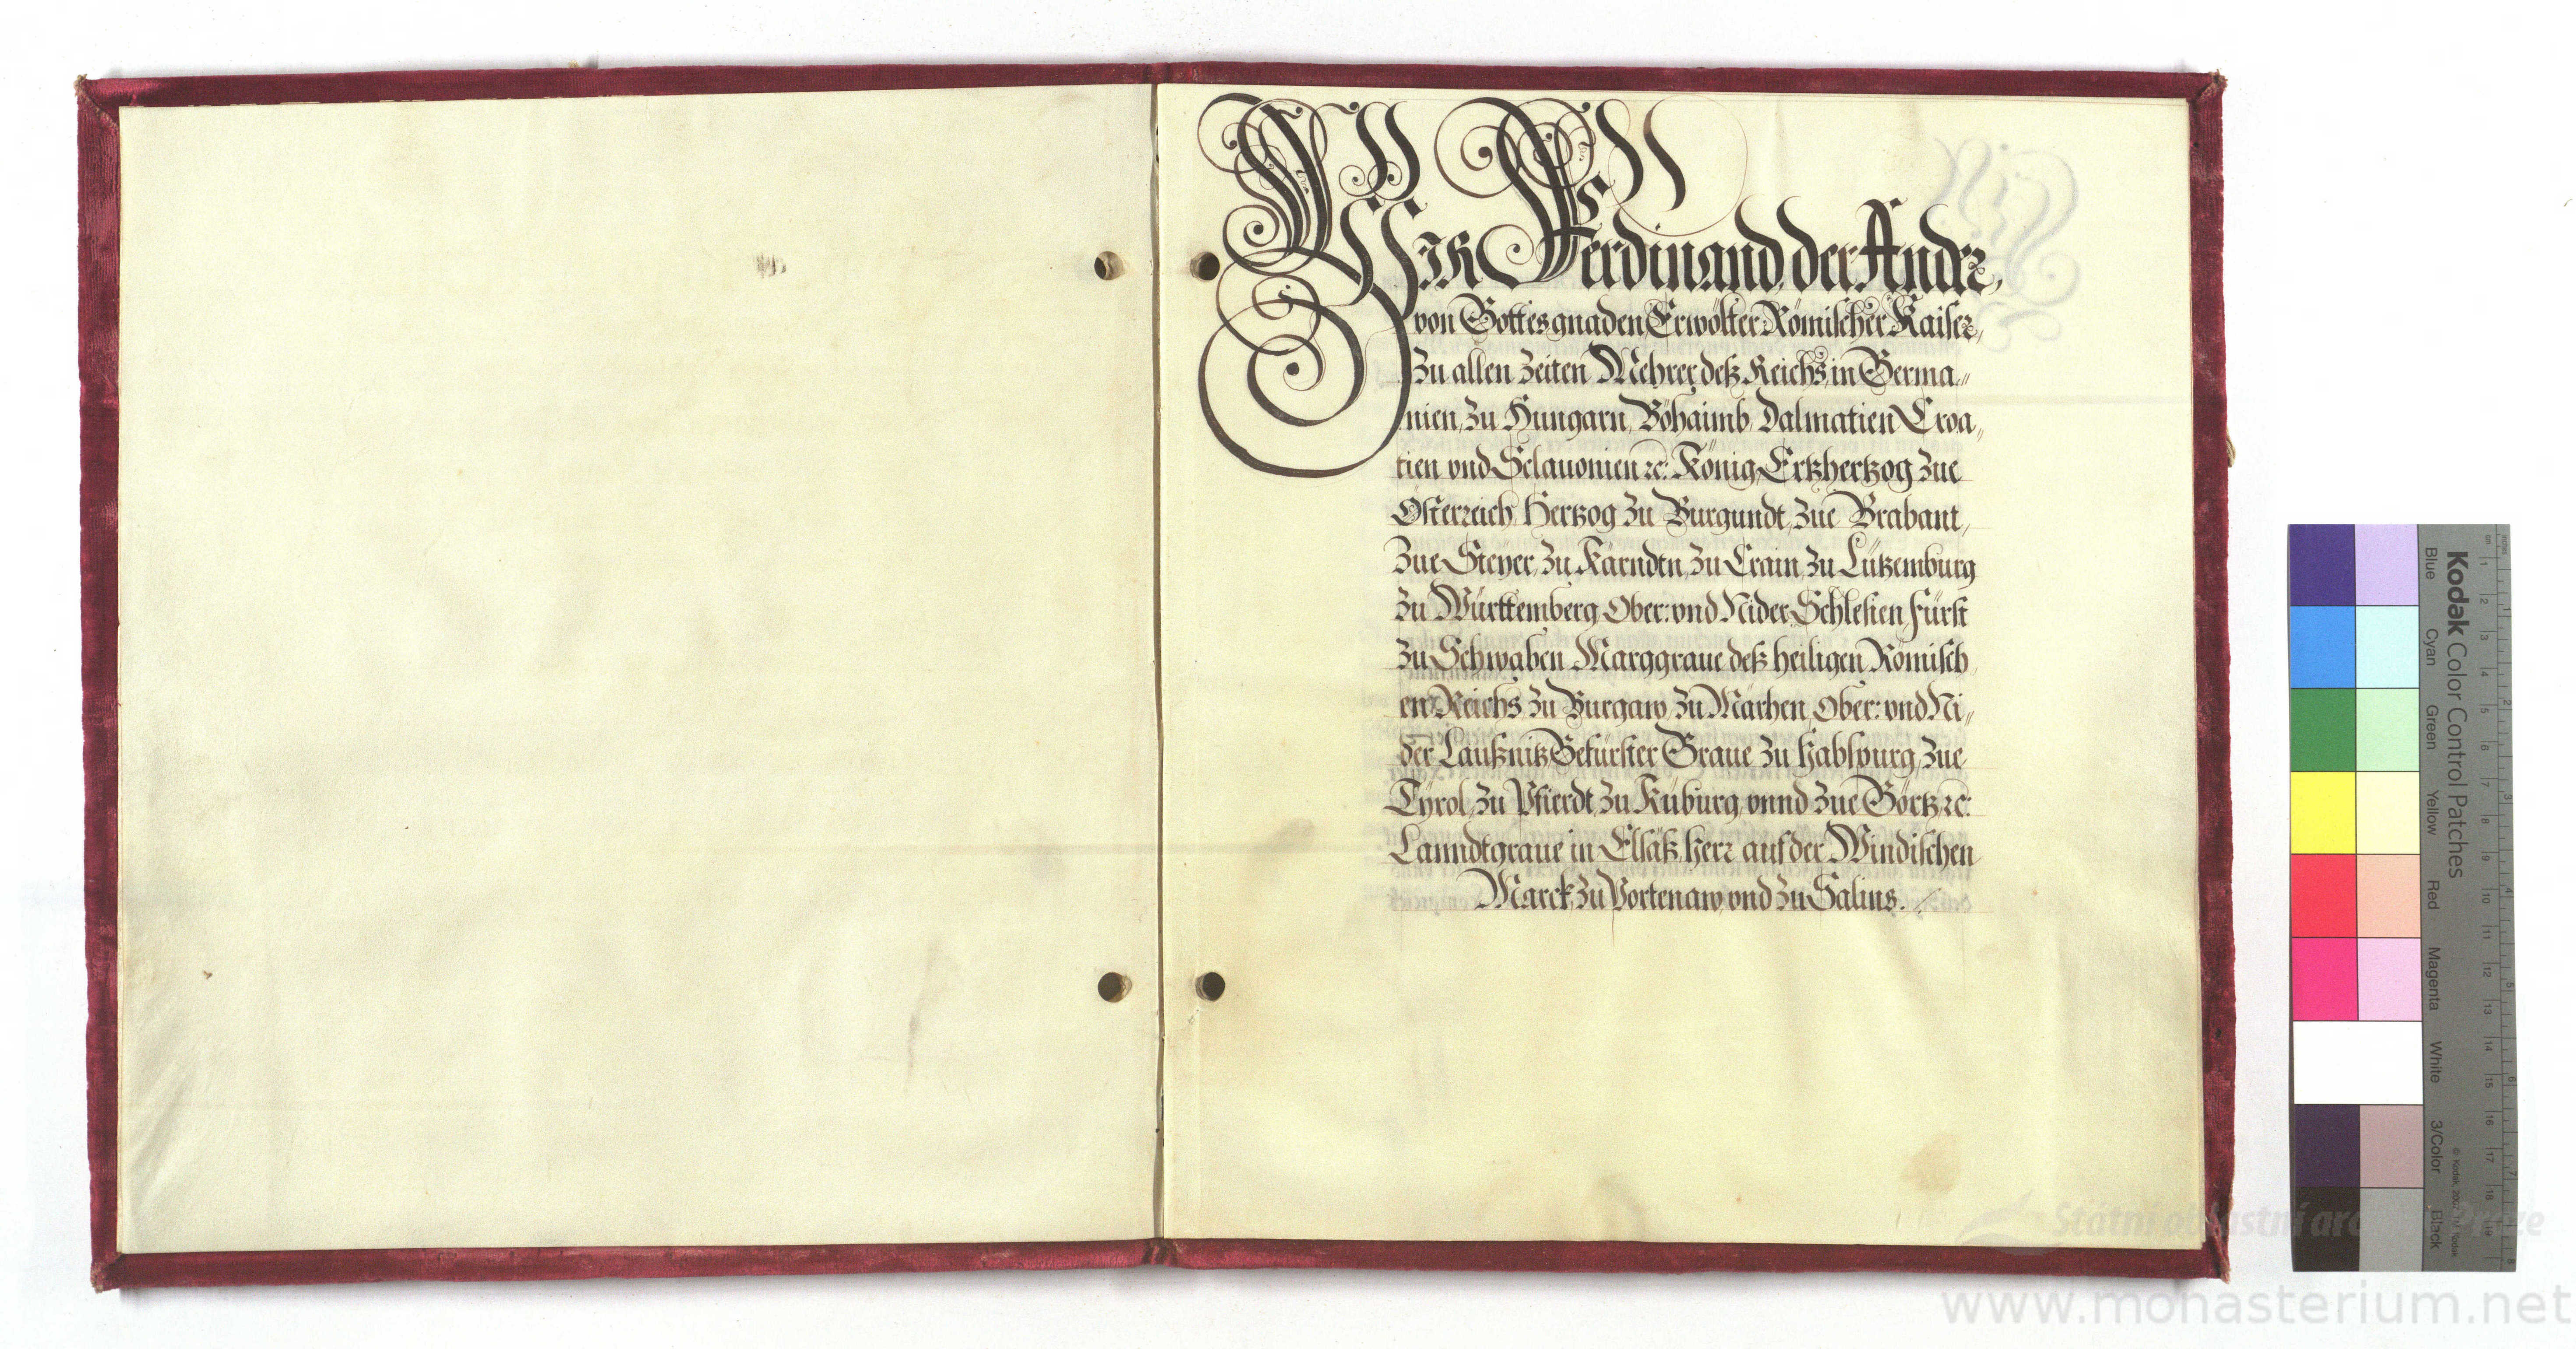 WIR Ferdinand der Ander,
von Gottes gnaden Erwölter Römischer Kaiser,
zu allen Zeiten Mehrer deß Reichs, in Germa„
nien, zu Hungarn, Böhaimb, Dalmatien, Croa„
tien vnd Sclauonien ꝛc: König, Ertzhertzog zue
Österreich, Hertzog zu Burgundt, zue Brabant,
zue Steyer, zu Kärndtn, zu Crain, zu Lützemburg
zu Württemberg, Ober: vnd Nider Schlesien, Fürst
zu Schwaben, Marggraue deß heiligen Römisch
en Reichs, zu Burgaw, zu Märhen, Ober: vnd Ni„
der Laußnitz, Gefürster Graue zu Habspurg, zue
Tyrol, zu Pfierdt, zu Küburg, vnnd zue Görtz, ꝛc:
Lanndtgraue in Elsäß, Herr auf der Windischen
Marck, zu Portenaw, vnd zu Salins.
Kodak Color Control Patches
Blue Cyan Green Yellow Red Magenta White 3/Color Black
Státní oblastní archiv v Praze
www.monasterium.net